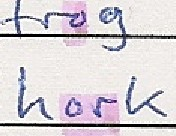 frog
hork